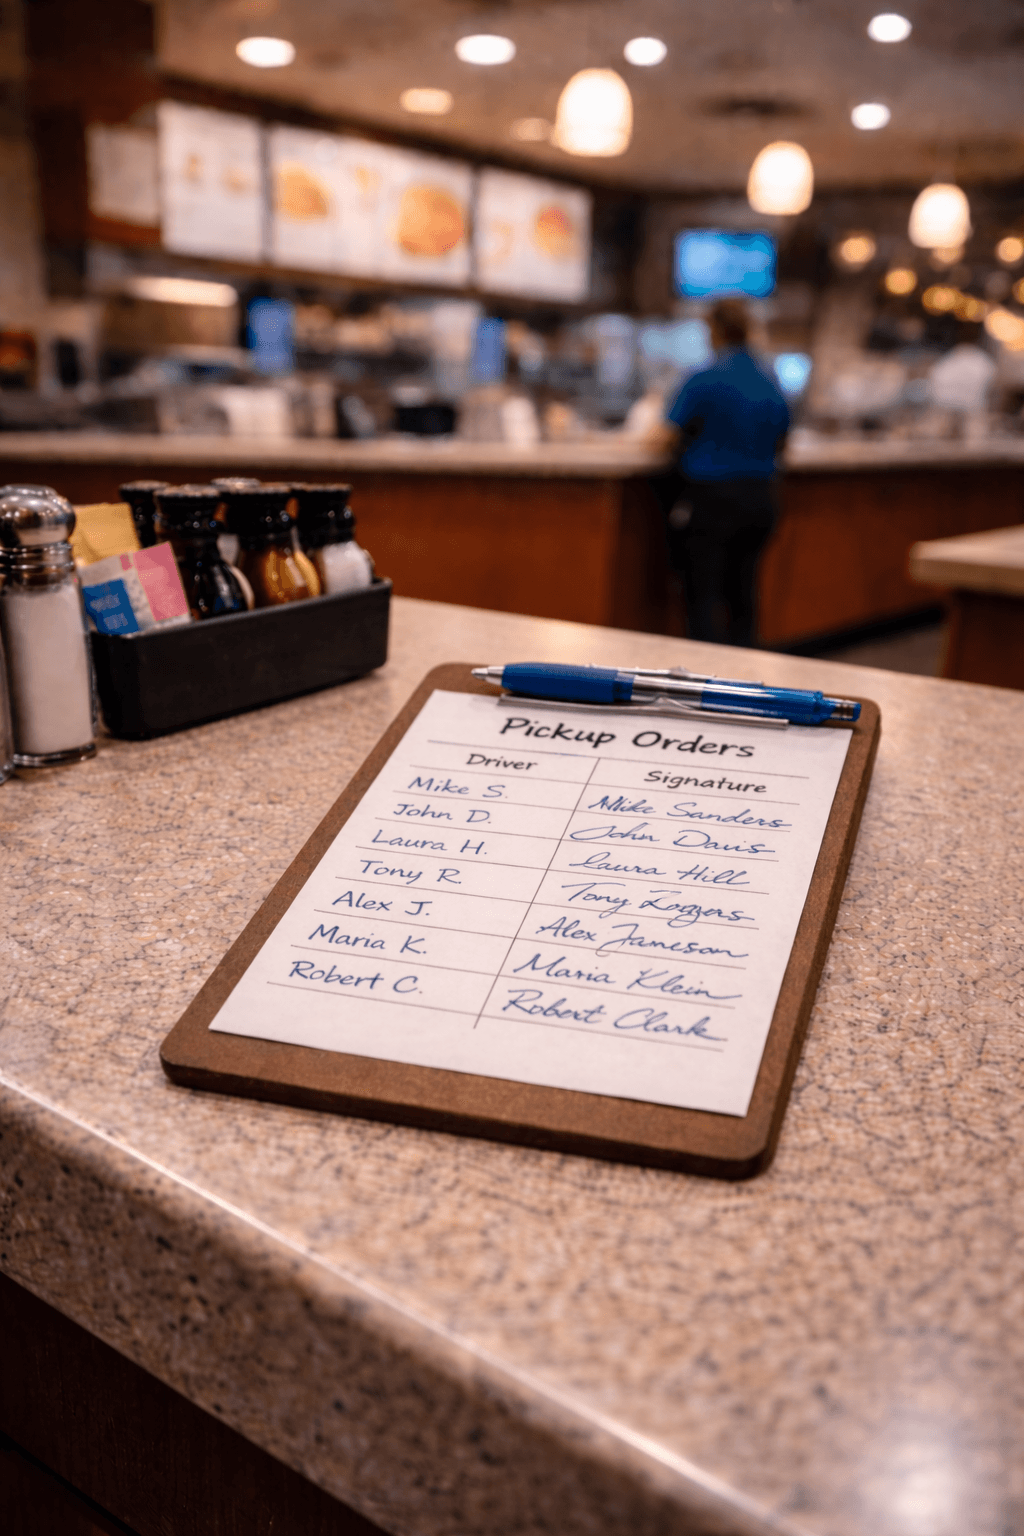 Pickup Orders
Driver Signature
Mike S. Mike Sanders
John D. John Davis
Laura H. Laura Hill
Tony R. Tony
Alex J. Alex Jameson
Maria K. Maria Klein
Robert C. Robert Clark